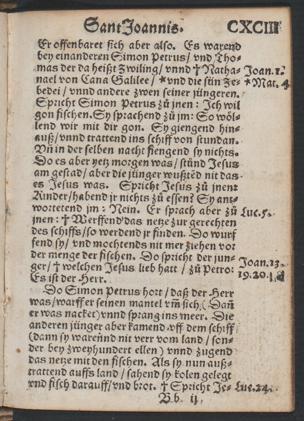 Sant Joannis. CXCIII
Er offenbaret sich aber also. Es warend
bey einanderen Simon Petrus / vnd Tho-
mas der da heißt Zwiling / vnnd † Natha- Joan.1.
nael von Cana Galilee / * vnd die sün Ze- * Mat. 4
bedei / vnnd andere zwen seiner jüngeren.
Spricht Simon Petrus zů jnen : Ich wil
gon fischen. Sy sprachend zů jm: So wöl-
lend wir mit dir gon. Sy giengend hin-
auß / vnnd trattend ins schiff von stundan.
Vñ in der selben nacht fiengend sy nichts.
Do es aber yetz morgen was / stůnd Jesus
am gestad / aber die jünger wußted nit das
es Jesus was. Spricht Jesus zů jnen:
Kinder / habend jr nichts zů essen? Sy ant-
wortetend jm : Nein. Er sprach aber zů Luc.5.
jnen : † Werffend das netze zur gerechten
des schiffs / so werdend jr finden. Do wurf
fend sy / vnd mochtends nit mer ziehen vor
der menge der fischen. Do spricht der jun- Joan.13.
ger / † welchen Jesus lieb hatt / zů Petro: 19.20.
Es ist der Herr.
Do Simon Petrus hort / daß der Herr
was / warff er seinen mantel vm̃ sich / (Dañ
er was nacket) vnnd sprang ins meer. Die
anderen jünger aber kamend vff dem schiff
(dann sy warend nit verr vom land / son-
der bey zweyhundert ellen) vnnd zugend
das netze mit den fischen. Als sy nun auß-
trattend auffs land / sahend sy kolen gelegt
vnd fisch darauff / vnd brot. † Spricht Je- Luc.24.
Bb ij